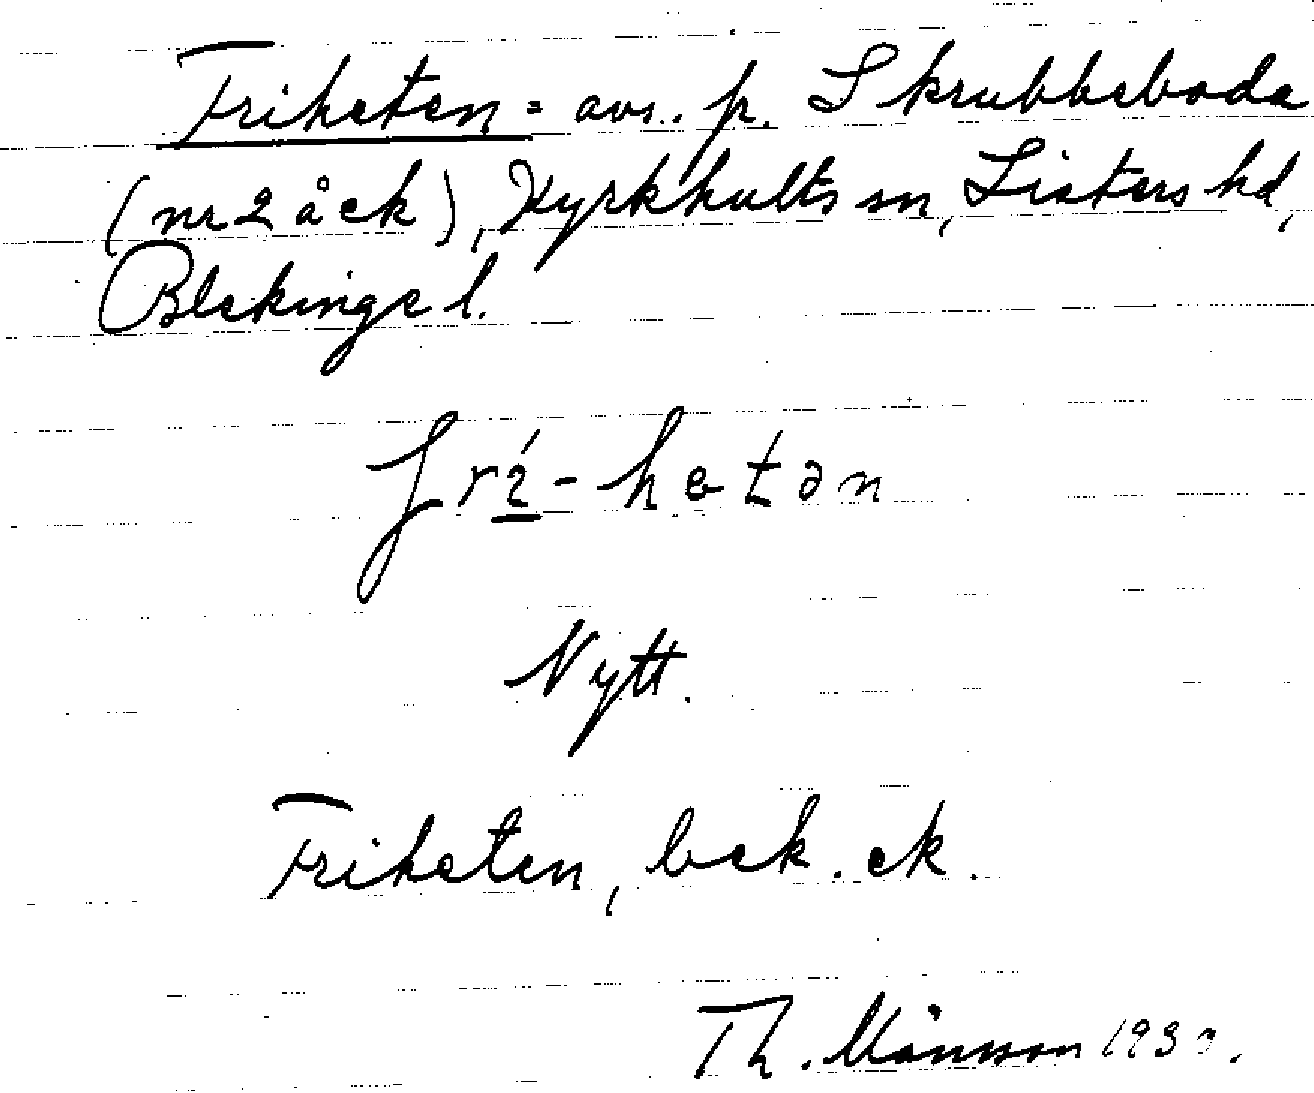 Friheten = avs. p. Skrubbeboda
(nr 2 åck), Kyrkhults sn, Listers hd,
Blekinge l.
frí-hetən
Nytt.
Friheten, bek. ek.
Th. Månsson 1930.